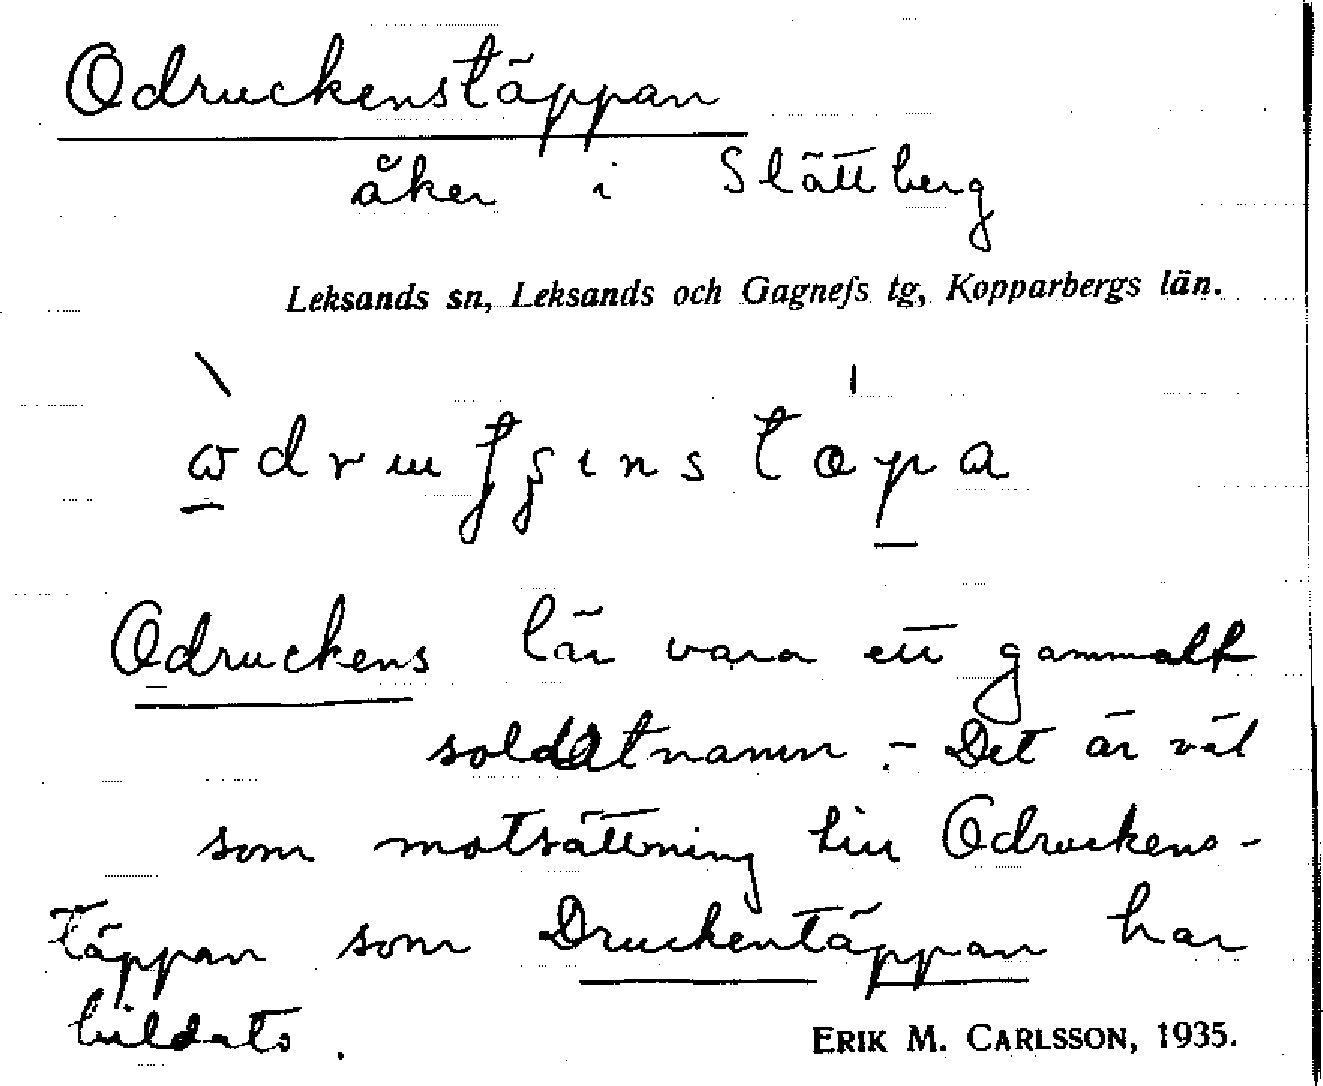 Odruckenstäppan
åker i Slättberg
Leksands sn, Leksands och Gagnefs tg, Kopparbergs län.
Odruckens lär vara ett gammalt
soldatnamn. – Det är väl
som motsättning till Odruckens-
täppan som Druckentäppan har
bildats.
ERIK M. CARLSSON, 1935.